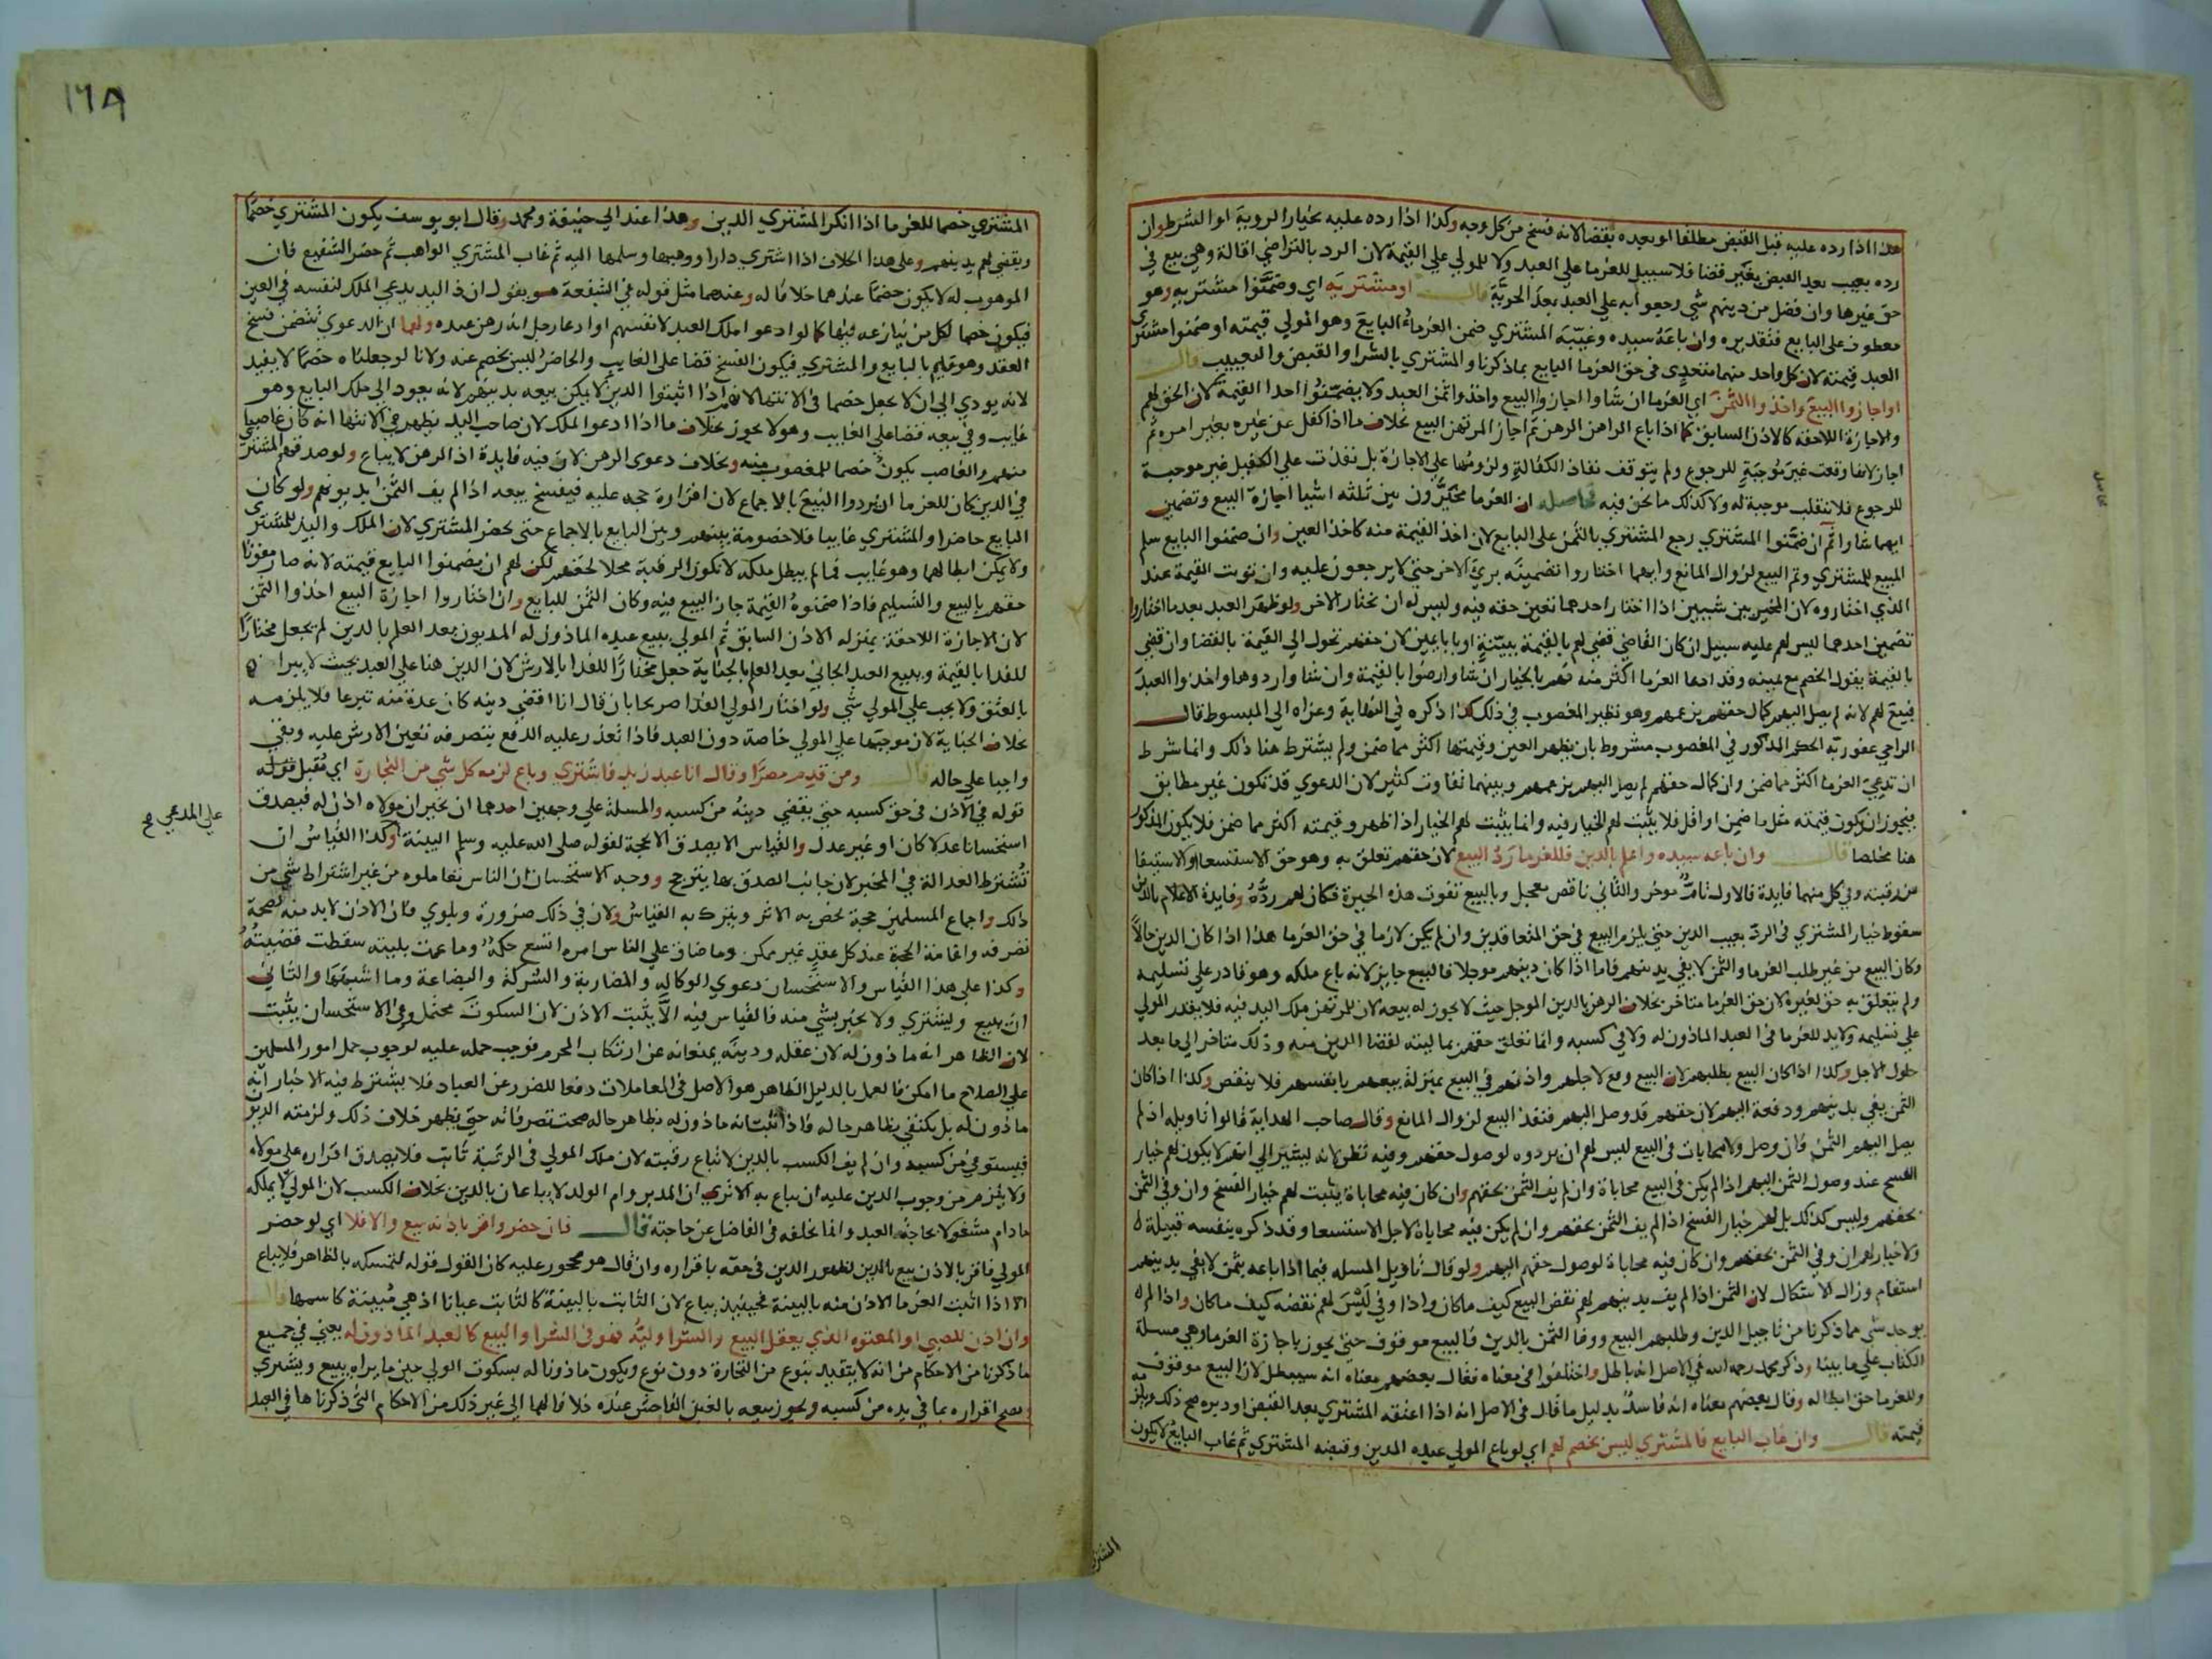 هذا اذا رده عليه قبل القبض مطلقا او بعيده بقضا لانه فسخ من كل وجه وكذا اذا رده عليه بخيار الروية او الشرط وان
رده بعيب بعيد القبض بغير قضا فلا سبيل للغرما على العبد ولا للمولي علي القيمة لان الرد بالتراضي اقالة وهي بيع في
حق غيرها وان فضل من دينهم شي رجعوا به علي العبد بعد الحرية قال او مشتريه اي وضمنوا مشتريه وهو
معطوف على البايع فتقديره وان باعه سيده وغيبه المشتري ضمن الغرماء البايع وهو المولي قيمته او ضمنوا مشترى
العبد قيمته لان كل واحد منهما متعدي في حق الغرما البايع بما ذكرنا والمشتري بالشرا والقبض والتغييب قال
او اجازوا البيع واخذوا الثمن اي الغرما ان شاوا اجازوا البيع واخذوا ثمن العبد ولا يضمنوا احدا القيمة لان الحق لهم
والاجازة اللاحقة كالاذن السابق كما اذا باع الراهن الرهن ثم اجاز المرتهن البيع بخلاف ما اذا كفل عن غيره بغير امره ثم
اجاز لانها وقعت غير موجبة للرجوع ولم يتوقف نفاذ الكفالة ولزومها على الاجازة بل نفذت علي الكفيل غير موجبة
للرجوع فلا تنقلب موجبة له ولا كذلك ما نحن فيه فحاصله ان الغرما مخيرون بين ثلثه اشيا اجازة البيع وتضمين
ايهما شاوا ثم ان ضمنوا المشتري رجع المشتري بالثمن على البايع لان اخذ القيمة منه كاخذ العين وان ضمنوا البايع سلم
المبيع للمشتري وتم البيع لزوال المانع وايهما اختاروا تضمينه بري الاخر حتي لا يرجعون عليه وان تويت القيمة عند
الذي اختاروه لان المخير بين شييين اذا اختار احدهما تعين حقه فيه وليس له ان يختار الاخر ولو ظهر العبد بعد ما اختاروا
تضمين احدهما ليس لهم عليه سبيل ان كان القاضي قضي لهم بالقيمة ببينة او بابا يمين لان حقهم تحول الي القيمة بالقضا وان قضي
بالقيمة بقول الخصم مع يمينه وقد ادعا الغرما اكثر منه فهم بالخيار ان شاوا رضوا بالقيمة وان شاوا ردوها واخذوا العبد
فبيع لهم لانه لم يصل اليهم كمال حقهم بزعمهم وهو نظير المغصوب في ذلك كذا ذكره في النهاية وعزاه الي المبسوط قال
الراجي عفو ربه الحكم المذكور في المغصوب مشروط بان يظهر العين وقيمتها اكثر مما ضمن ولم يشترط هنا ذلك وانما شرط
ان تدعي الغرما اكثر مما ضمن وان كمال حقهم لم يصل اليهم بزعمهم وبينهما تفاوت كثير لان الدعوي قد تكون غير مطابق
فيجوز ان يكون قيمته مثل ما ضمن او اقل فلا يثبت لهم الخيار فيه وانما يثبت لهم الخيار اذا ظهر وقيمته اكثر مما ضمن فلا يكون المذكور
هنا مخلصا قال وان باعه سيده واعلم بالدين فللغرما رد البيع لان حقهم تعلق به وهو حق الاستسعا والاستيفا
من رقبته وفي كل منهما فايدة فالاول تام موخر والثاني ناقص معجل وبالبيع تفوت هذه الخيرة فكان لهم رده وفايدة الاعلام بالدين
سقوط خيار المشتري في الرد بعيب الدين حتي يلزم البيع في حق المتعاقدين وان لم يكن لازما في حق الغرما هذا اذا كان الدين حالا
وكان البيع من غير طلب الغرما والثمن لا يفي بدينهم فاما اذا كان دينهم موجلا فالبيع جايز لانه باع ملكه وهو قادر على تسليمه
ولم يتعلق به حق لغيره لان حق الغرما متاخر بخلاف الرهن بالدين الموجل حيث لا يجوز له بيعه لان للمرتهن ملك اليد فيه فلا يقدر المولي
علي تسليمه ولا يد للغرما في العبد الماذون له ولا في كسبه وانما تعلق حقهم بماليته لقضا الدين منه وذلك متاخر الي ما بعد
حلول الاجل وكذا اذا كان البيع بطلبهم لان البيع وقع لاجلهم واذنهم في البيع بمنزلة بيعهم بانفسهم فلا ينقض وكذا اذا كان
الثمن يفي بدينهم ودفعه اليهم لان حقهم قد وصل اليهم فنفذ البيع لزوال المانع وقال صاحب الهداية قالوا تاويله اذا لم
يصل اليهم الثمن فان وصل ولا محابات في البيع ليس لهم ان يردوه لوصول حقهم وفيه نظر لانه يشير الي انهم لا يكون لهم خيار
الفسخ عند وصول الثمن اليهم اذا لم يكن في البيع محاباة وان لم يف الثمن بحقهم وان كان فيه محاباة يثبت لهم خيار الفسخ وان وفي الثمن
بحقهم وليس كذلك بل لهم خيار الفسخ اذا لم يف الثمن بحقهم وان لم يكن فيه محاباة لاجل الاستسعا وقد ذكره بنفسه قبيله
ولا خيار لهم ان وفي الثمن بحقهم وان كان فيه محاباة لوصول حقهم اليهم ولو قال تاويل المسلة فيما اذا باعه بثمن لا يفي بدينهم
استقام وزال الاشكال لان الثمن اذا لم يف بدينهم لهم نقض البيع كيف ما كان واذا وفي ليس لهم نقضه كيف ما كان واذا لم
يوجد شي مما ذكرنا من تاجيل الدين وطلبهم البيع ووفا الثمن بالدين فالبيع موقوف حتي يجوز باجازة الغرما وهي مسلة
الكتاب علي ما بينا وذكر محمد رحمه الله في الاصل انه باطل واختلفوا في معناه فقال بعضهم معناه انه سيبطل لان البيع موقوف
وللغرما حق ابطاله وقال بعضهم معناه انه فاسد بدليل ما قال في الاصل انه اذا اعتقه المشتري بعد القبض او دبره صح ذلك ويلزمه
قيمته قال وان غاب البايع فالمشتري ليس بخصم لهم اي لو باع المولي عبده المدين وقبضه المشتري ثم غاب البايع لا يكون
المشتري
المشتري خصما للغرما اذا انكر المشتري الدين وهذا عند ابي حنيفة ومحمد وقال ابو يوسف يكون المشتري خصما
ويقضي لهم بدينهم وعلى هذا الخلاف اذا اشتري دارا ووهبها وسلمها اليه ثم غاب المشتري الواهب ثم حضر الشفيع فان
الموهوب له لا يكون خصما عندهما خلافا له وعنهما مثل قوله في الشفعة هو يقول ان ذا اليد يدعي الملك لنفسه في العين
فيكون خصما لكل من ينازعه فيها كما لو ادعوا ملك العبد لانفسهم او ادعا رجل انه رهن عنده ولهما ان الدعوي تتضمن فسخ
العقد وهو قايم بالبايع والمشتري فيكون الفسخ قضا على الغايب والحاضر ليس بخصم عنه ولانا لو جعلناه خصما لا يفيد
لانه يودي الي ان لا يجعل خصما في الانتها لانهم اذا اثبتوا الدين لا يمكن بيعه بدينهم لانه يعود الي ملك البايع وهو
غايب وفي بيعه قضا علي الغايب وهو لا يجوز بخلاف ما اذا ادعوا الملك لان صاحب اليد يظهر في الانتها انه كان غاصبا
منهم والغاصب يكون خصما للمغصوب منه وبخلاف دعوى الرهن لان فيه فايدة اذ الرهن لا يباع ولو صدقهم المشتري
في الدين كان للغرما ان يردوا البيع بالاجماع لان اقراره حجه عليه فيفسخ بيعه اذا لم يف الثمن بديونهم ولو كان
البايع حاضرا والمشتري غايبا فلا خصومة بينهم وبين البايع بالاجماع حتي يحضر المشتري لان الملك واليد للمشترى
ولا يمكن ابطالهما وهو غايب فما لم يبطل ملكه لا تكون الرقبة محلا لحقهم لكن لهم ان يضمنوا البايع قيمته لانه صار مفوتا
حقهم بالبيع والتسليم فاذا ضمنوه القيمة جاز البيع فيه وكان الثمن للبايع وان اختاروا اجازة البيع اخذوا الثمن
لان الاجازة اللاحقة بمنزله الاذن السابق ثم المولي ببيع عبده الماذون له المديون بعد العلم بالدين لم يجعل مختارا
للفدا بالقيمة وببيع العبد الجاني بعد العلم بالجناية جعل مختارا للفدا بالارش لان الدين هنا علي العبد بحيث لا يبرا
بالعتق ولا يجب علي المولي شي ولو اختار المولي الفدا صريحا بان قال انا اقضي دينه كان عدة منه تبرعا فلا يلزمه
بخلاف الجناية لان موجبها علي المولي خاصة دون العبد فاذا تعذر عليه الدفع بتصرفه تعين الارش عليه وبقي
واجبا علي حاله قال ومن قدم مصرا وقال انا عبد زيد فاشتري وباع لزمه كل شي من التجارة اي تقبل قوله
قوله في الاذن في حق كسبه حتي يقضي دينه من كسبه والمسلة علي وجهين احدهما ان يخبر ان مولاه اذن له فيصدق
استحسانا عدلا كان او غير عدل والقياس الا يصدق الا بحجة لقوله صلى الله عليه وسلم البينة وكذا القياس ان
علي المدعي صح
تشترط العدالة في المخبر لان جانب الصدق بها يترجح ووجه الاستحسان ان الناس تعاملوه من غير اشتراط شي من
ذلك واجماع المسلمين حجة يخص به الاثر ويترك به القياس ولان في ذلك ضرورة وبلوي فان الاذن لابد منه لصحة
تصرفه واقامة الحجة عند كل عقد غير ممكن وما ضاق علي الناس امره اتسع حكمه وما عمت بليته سقطت قضيته
وكذا على هذا القياس والاستحسان دعوي الوكاله والمضاربة والشركة والبضاعة وما اشبهها والثاني
ان يبيع ويشتري ولا يخبر بشي منه فالقياس فيه الا يثبت الاذن لان السكوت محتمل وفي الاستحسان يثبت
لان الظاهر انه ماذون له لان عقله ودينه يمنعانه عن ارتكاب المحرم فوجب حمله عليه لوجوب حمل امور المسلمين
علي الصلاح ما امكن فالعمل بالدليل الظاهر هو الاصل في المعاملات دفعا للضرر عن العباد فلا يشترط فيه الاخبار انه
ماذون له بل يكتفي بظاهر حاله فاذا ثبت انه ماذون له بظاهر حاله صحت تصرفاته حتي يظهر خلاف ذلك ولزمته الديون
فيستوفي من كسبه وان لم يف الكسب بالدين لا تباع رقبته لان ملك المولي في الرقبة ثابت فلا يصدق اقراره على مولاه
ولا يلزم من وجوب الدين عليه ان يباع به الا تري ان المدبر وام الولد لا يباعان بالدين بخلاف الكسب لان المولي لا يملكه
ما دام مشغولا بحاجة العبد وانما يخلفه في الفاضل عن حاجته قال فان حضر واقر باذنه بيع والا فلا اي لو حضر
المولي فاقر بالاذن بيع بالدين لظهور الدين في حقه باقراره وان قال هو محجور عليه كان القول قوله لتمسكه بالظاهر فلا يباع
الا اذا اثبت الغرما الاذن منه بالبينة فحينيذ يباع لان الثابت بالبينة كالثابت عيانا اذ هي مبينة كاسمها قال
وان اذن للصبي او المعتوه الذي يعقل البيع والشرا وليه فهو في الشرا والبيع كالعبد الماذون له يعني في جميع
ما ذكرنا من الاحكام من انه لا يتقيد بنوع من التجارة دون نوع ويكون ماذونا له بسكوت الولي حين ما يراه يبيع ويشتري
ويصح اقراره بما في يده من كسبه ويجوز بيعه بالغبن الفاحش عنده خلافا لهما الي غير ذلك من الاحكام التي ذكرناها في العبد